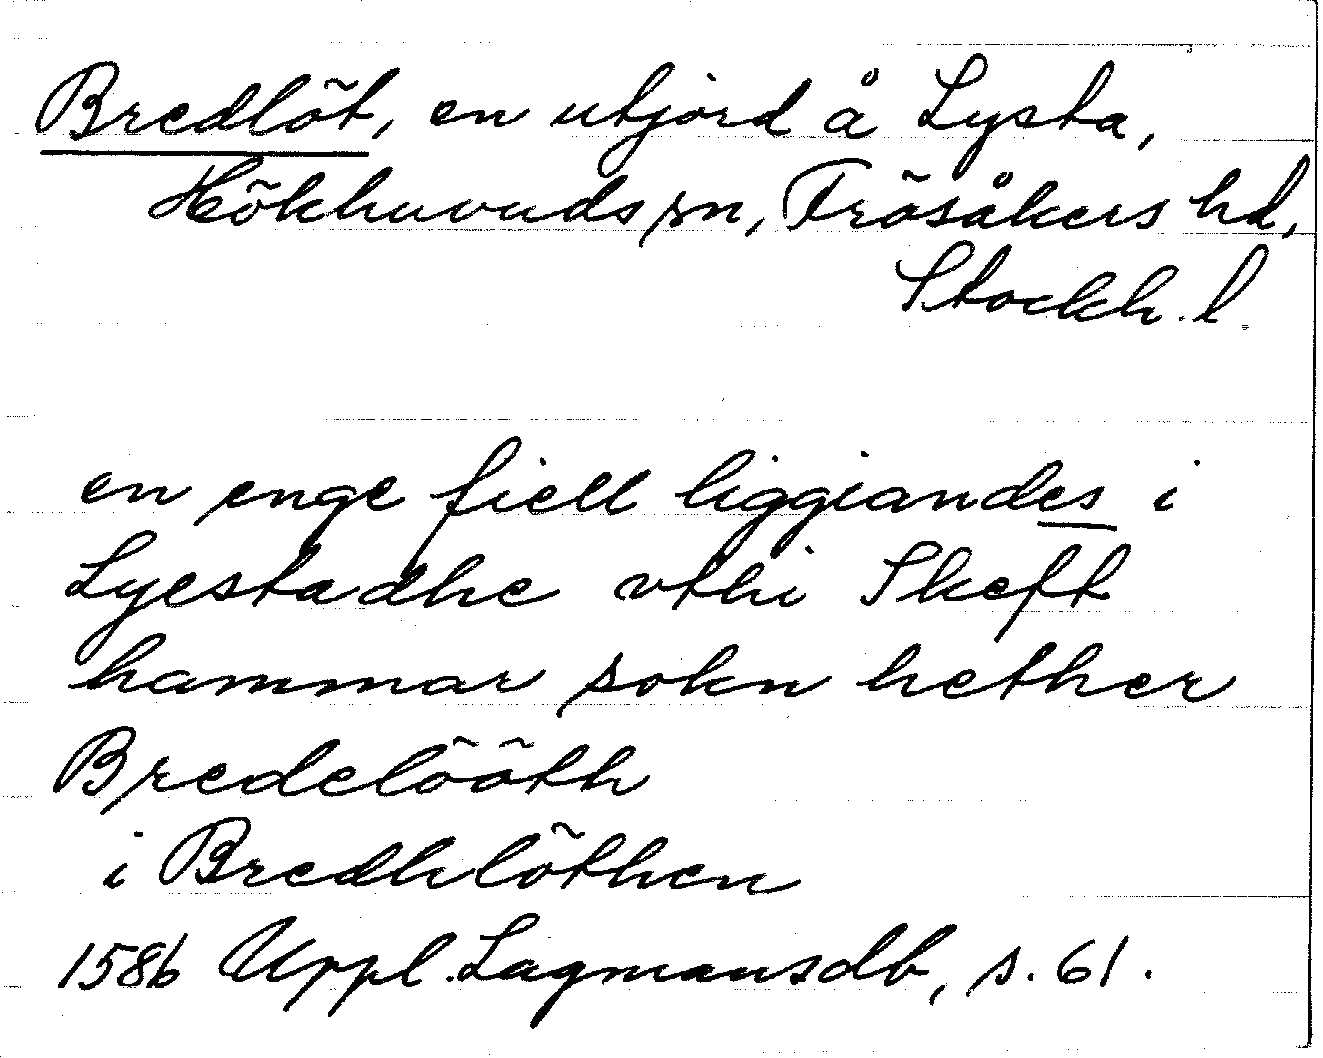 Bredlöt, en utjord å Lysta,
Hökhuvuds sn, Frösåkers hd,
Stockh. l.
en enge fiell liggiandes i
Lyestadhe vthi Skeft
hammar sokn hether
Bredelööth
i Bredhlöthen
1586 Uppl. Lagmansdb, s. 61.